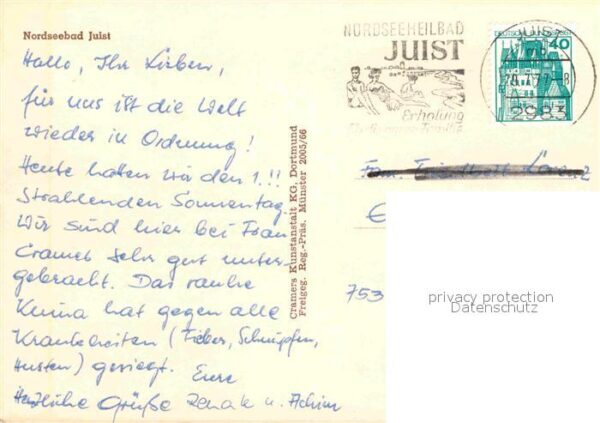 Nordseebad Juist
Hallo, Ihr Lieben,
für uns ist die Welt
wieder in Ordnung!
Heute hatten wir den 1.!!!
Strahlenden Sonnentag.
Wir sind hier bei Frau
Cramer sehr gut unter-
gebracht. Das rauhe
Klima hat gegen alle
Krankheiten (Fieber, Schnupfen,
Husten) gesiegt. Eure
Herzliche Grüße Renate u. Achim
Cramers Kunstanstalt KG, Dortmund
Freigeg. Reg.-Präs. Münster 2005/66
NORDSEEHEILBAD
JUIST
Erholung
JUIST
40
2983
753
privacy protection
Datenschutz